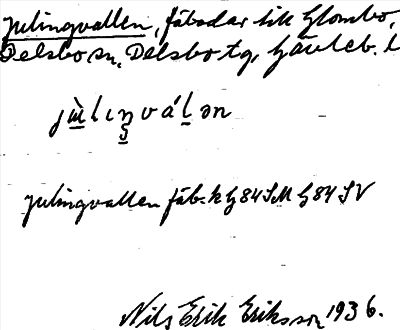 Julingvallen, fäbodar till Glombo,
Delsbo sn, Delsbo tg, Gävleb. l
Julingvallen fäb. k G84SM G84SV
Nils Erik Eriksson 1936.